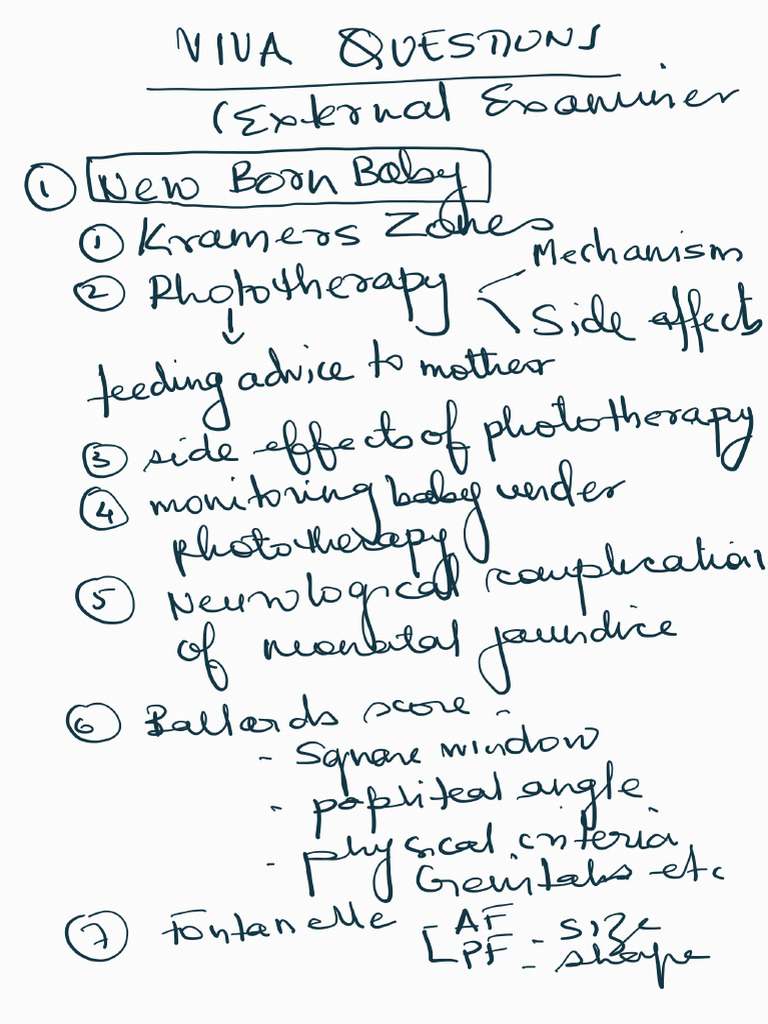 VIVA QUESTIONS
(External Examiner
① New Born Baby
① Kramers Zones
② Phototherapy < Mechanism
Side affects
↓
feeding advice to mother
③ side effects of phototherapy
④ monitoring baby under
phototherapy
⑤ Neurological complication
of neonatal jaundice
⑥ Ballards score -
- Square window
- popliteal angle
- physical criteria
Genitals etc
⑦ Fontanelle [ AF - size
PF - shape